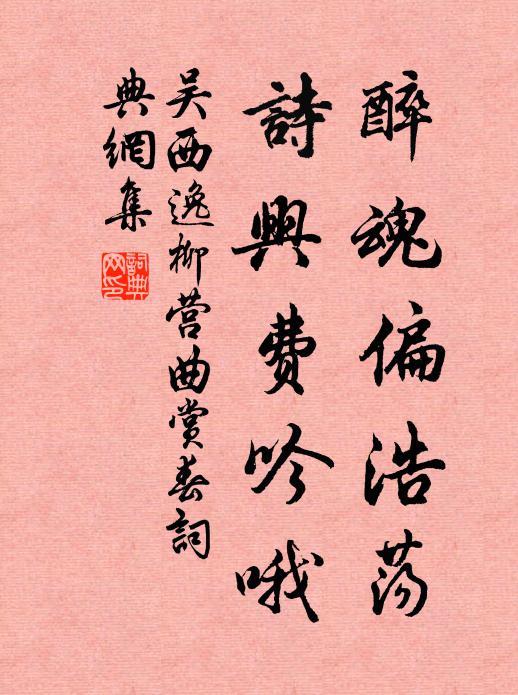 醉魂偏浩荡
詩興费吟哦
吴西逸柳营曲赏春詞
典網集
詞典网印